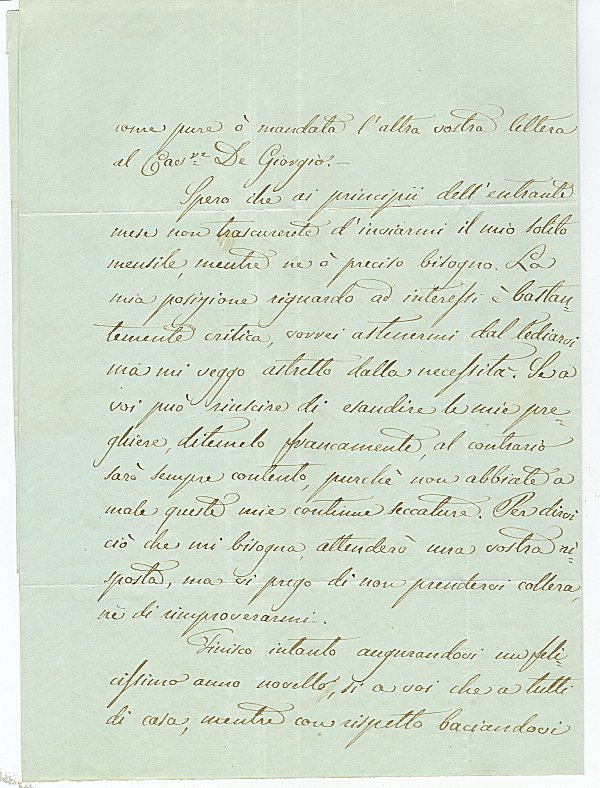 come pure ò mandata l'altra vostra lettera
al Cav.re De Giorgio.—
Spero che ai principii dell'entrante
mese non trascurerete d'inviarmi il mio solito
mensile, mentre ne ò preciso bisogno. La
mia posizione riguardo ad interessi è bastan-
temente critica, vorrei astenermi dal tediarvi
ma mi veggo astretto dalla necessità. Se a
voi può riuscire di esaudire le mie pre-
ghiere, ditemelo francamente, al contrario
sarò sempre contento, purchè non abbiate a
male queste mie continue seccature. Per dirvi
ciò che mi bisogna, attenderò una vostra ri-
sposta, ma vi prego di non prendervi collera,
nè di rimproverarmi.
Finisco intanto augurandovi un feli-
cissimo anno novello, sì a voi che a tutti
di casa, mentre con rispetto baciandovi